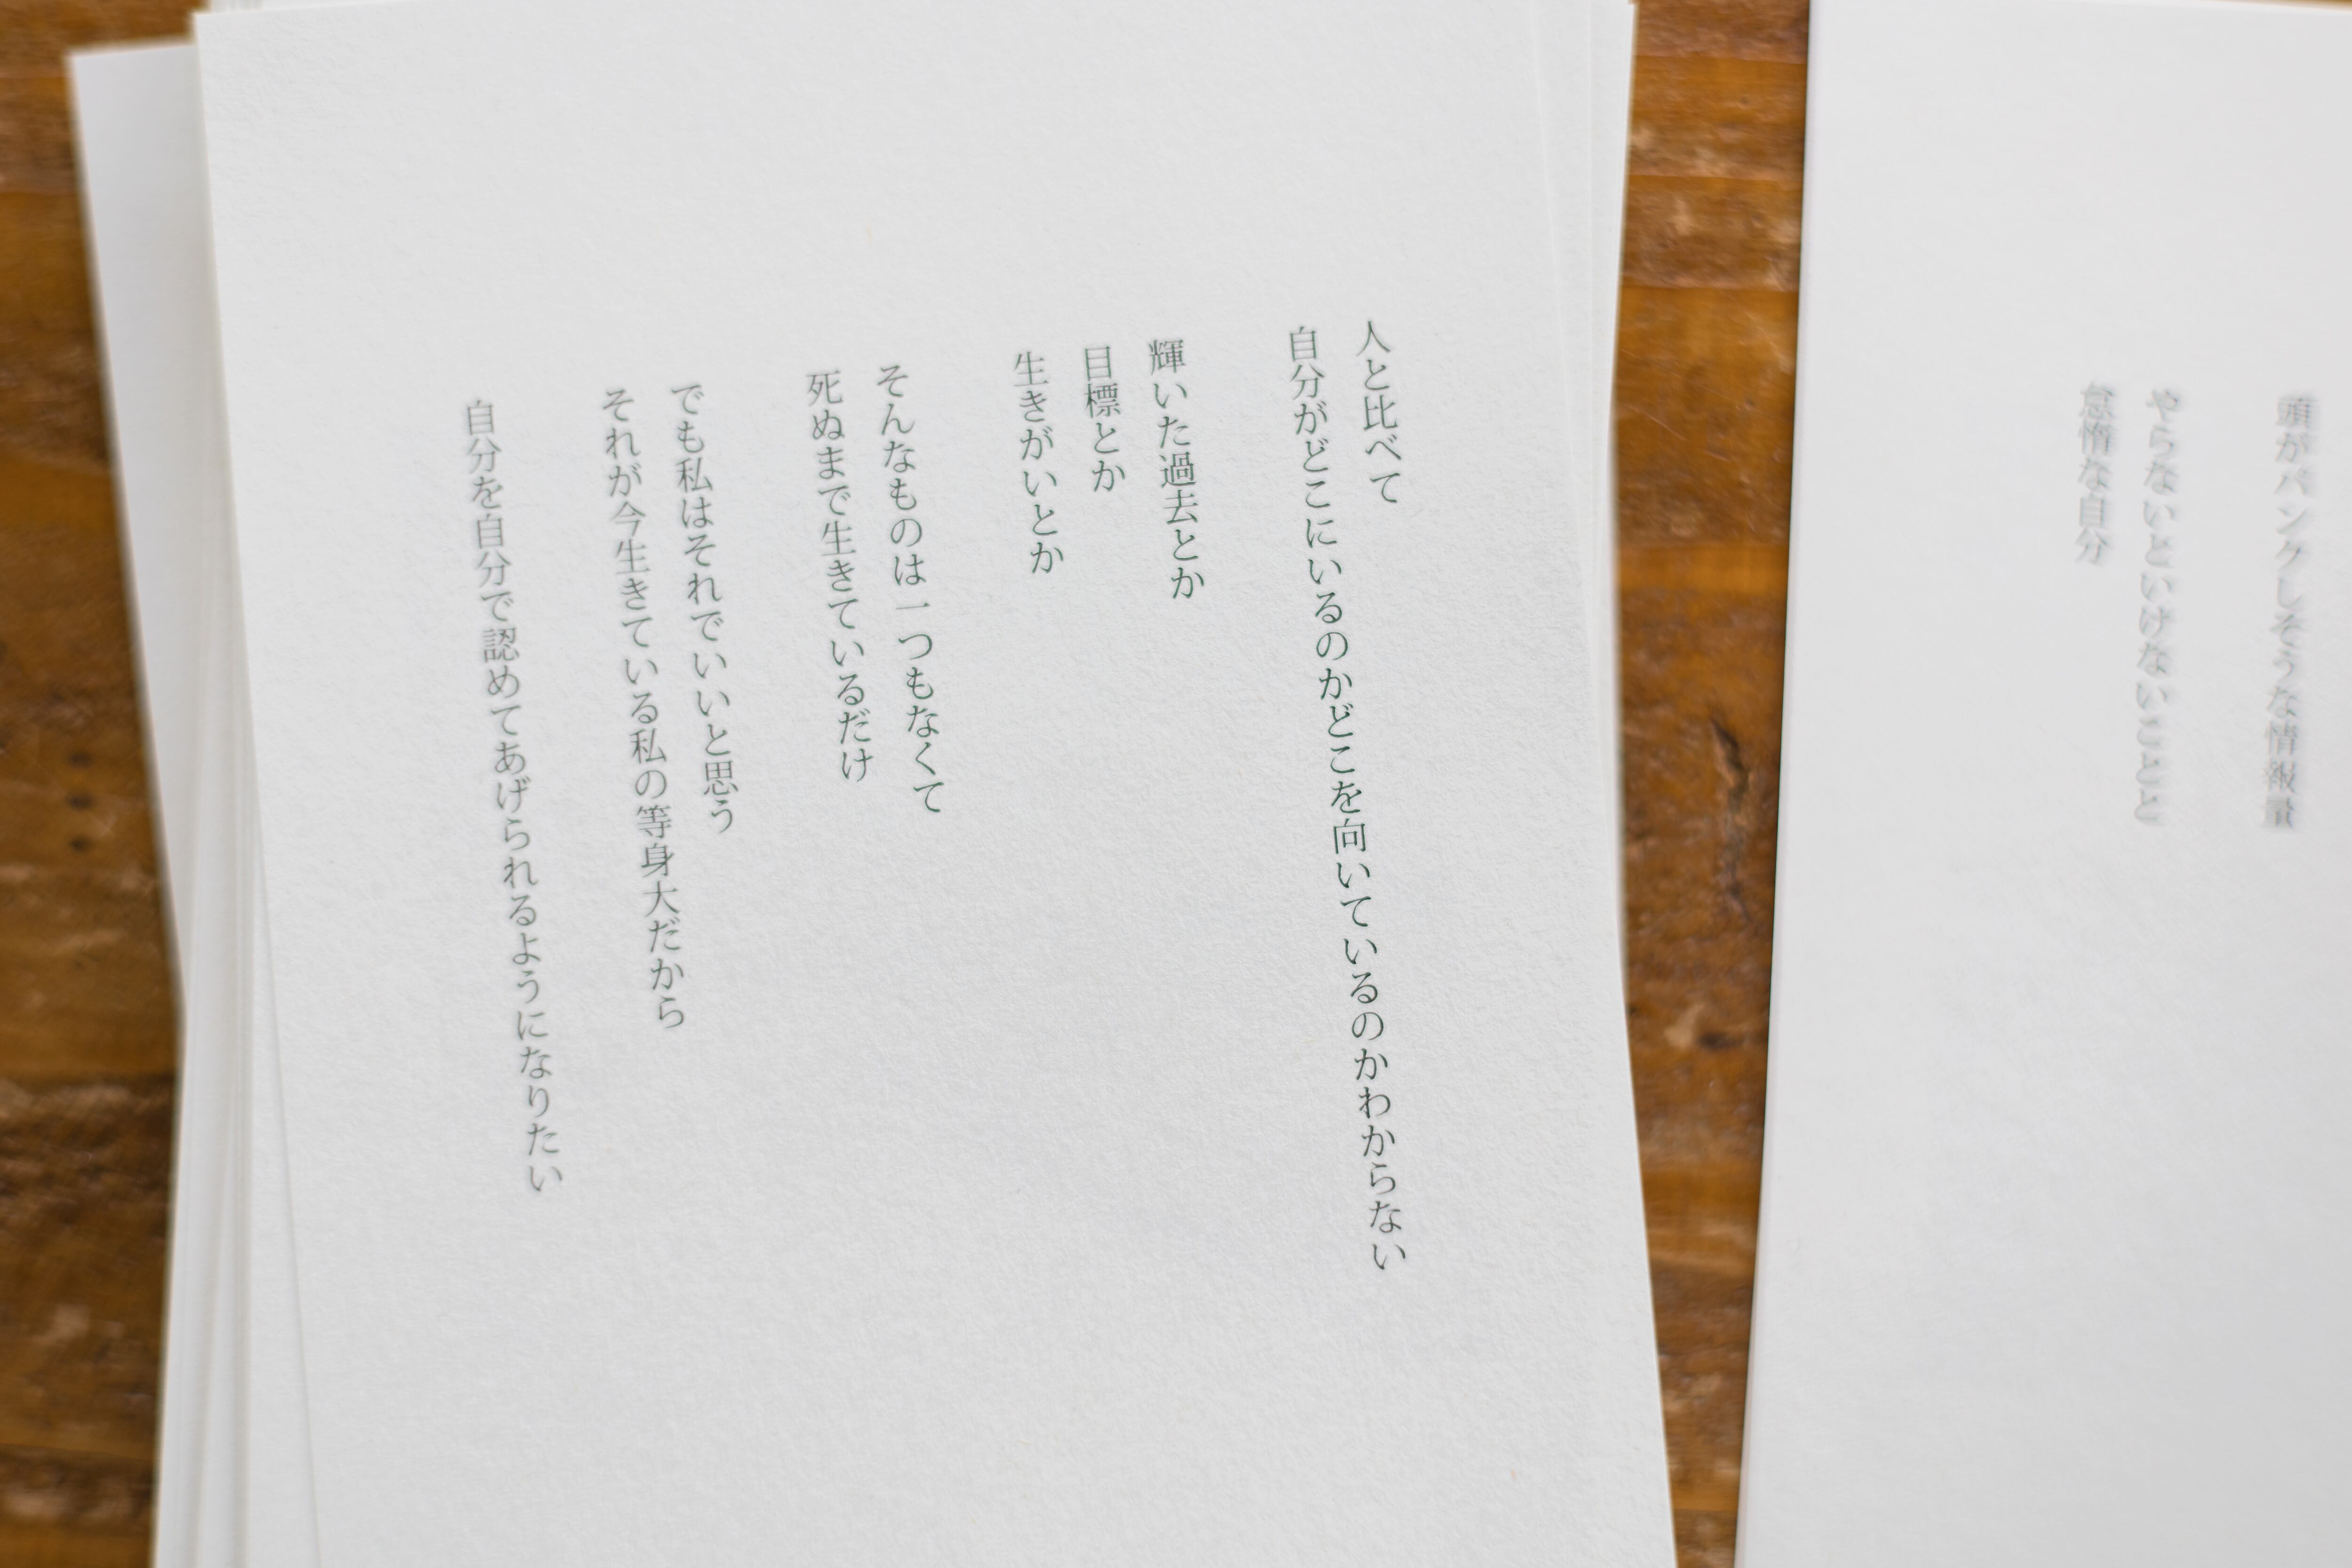 人と比べて
自分がどこにいるのかどこを向いているのかわからない
輝いた過去とか
目標とか
生きがいとか
そんなものは一つもなくて
死ぬまで生きているだけ
でも私はそれでいいと思う
それが今生きている私の等身大だから
自分を自分で認めてあげられるようになりたい
頭がパンクしそうな情報量
やらないといけないことと
怠惰な自分